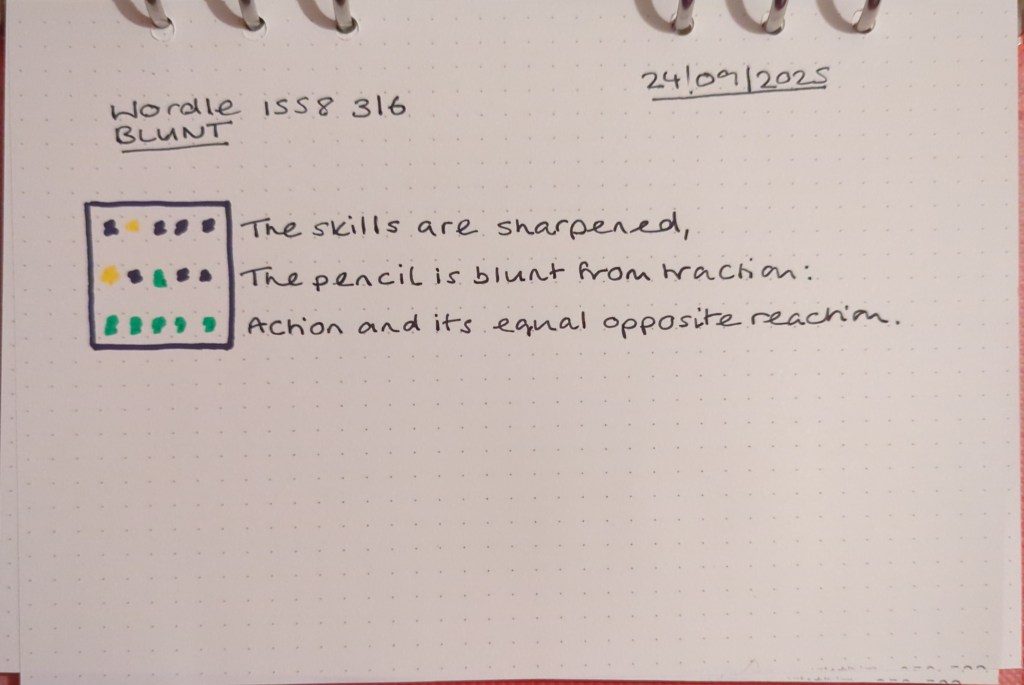 24/09/2025
Wordle 1558 3/6
BLUNT
The skills are sharpened,
The pencil is blunt from traction:
Action and its equal opposite reaction.